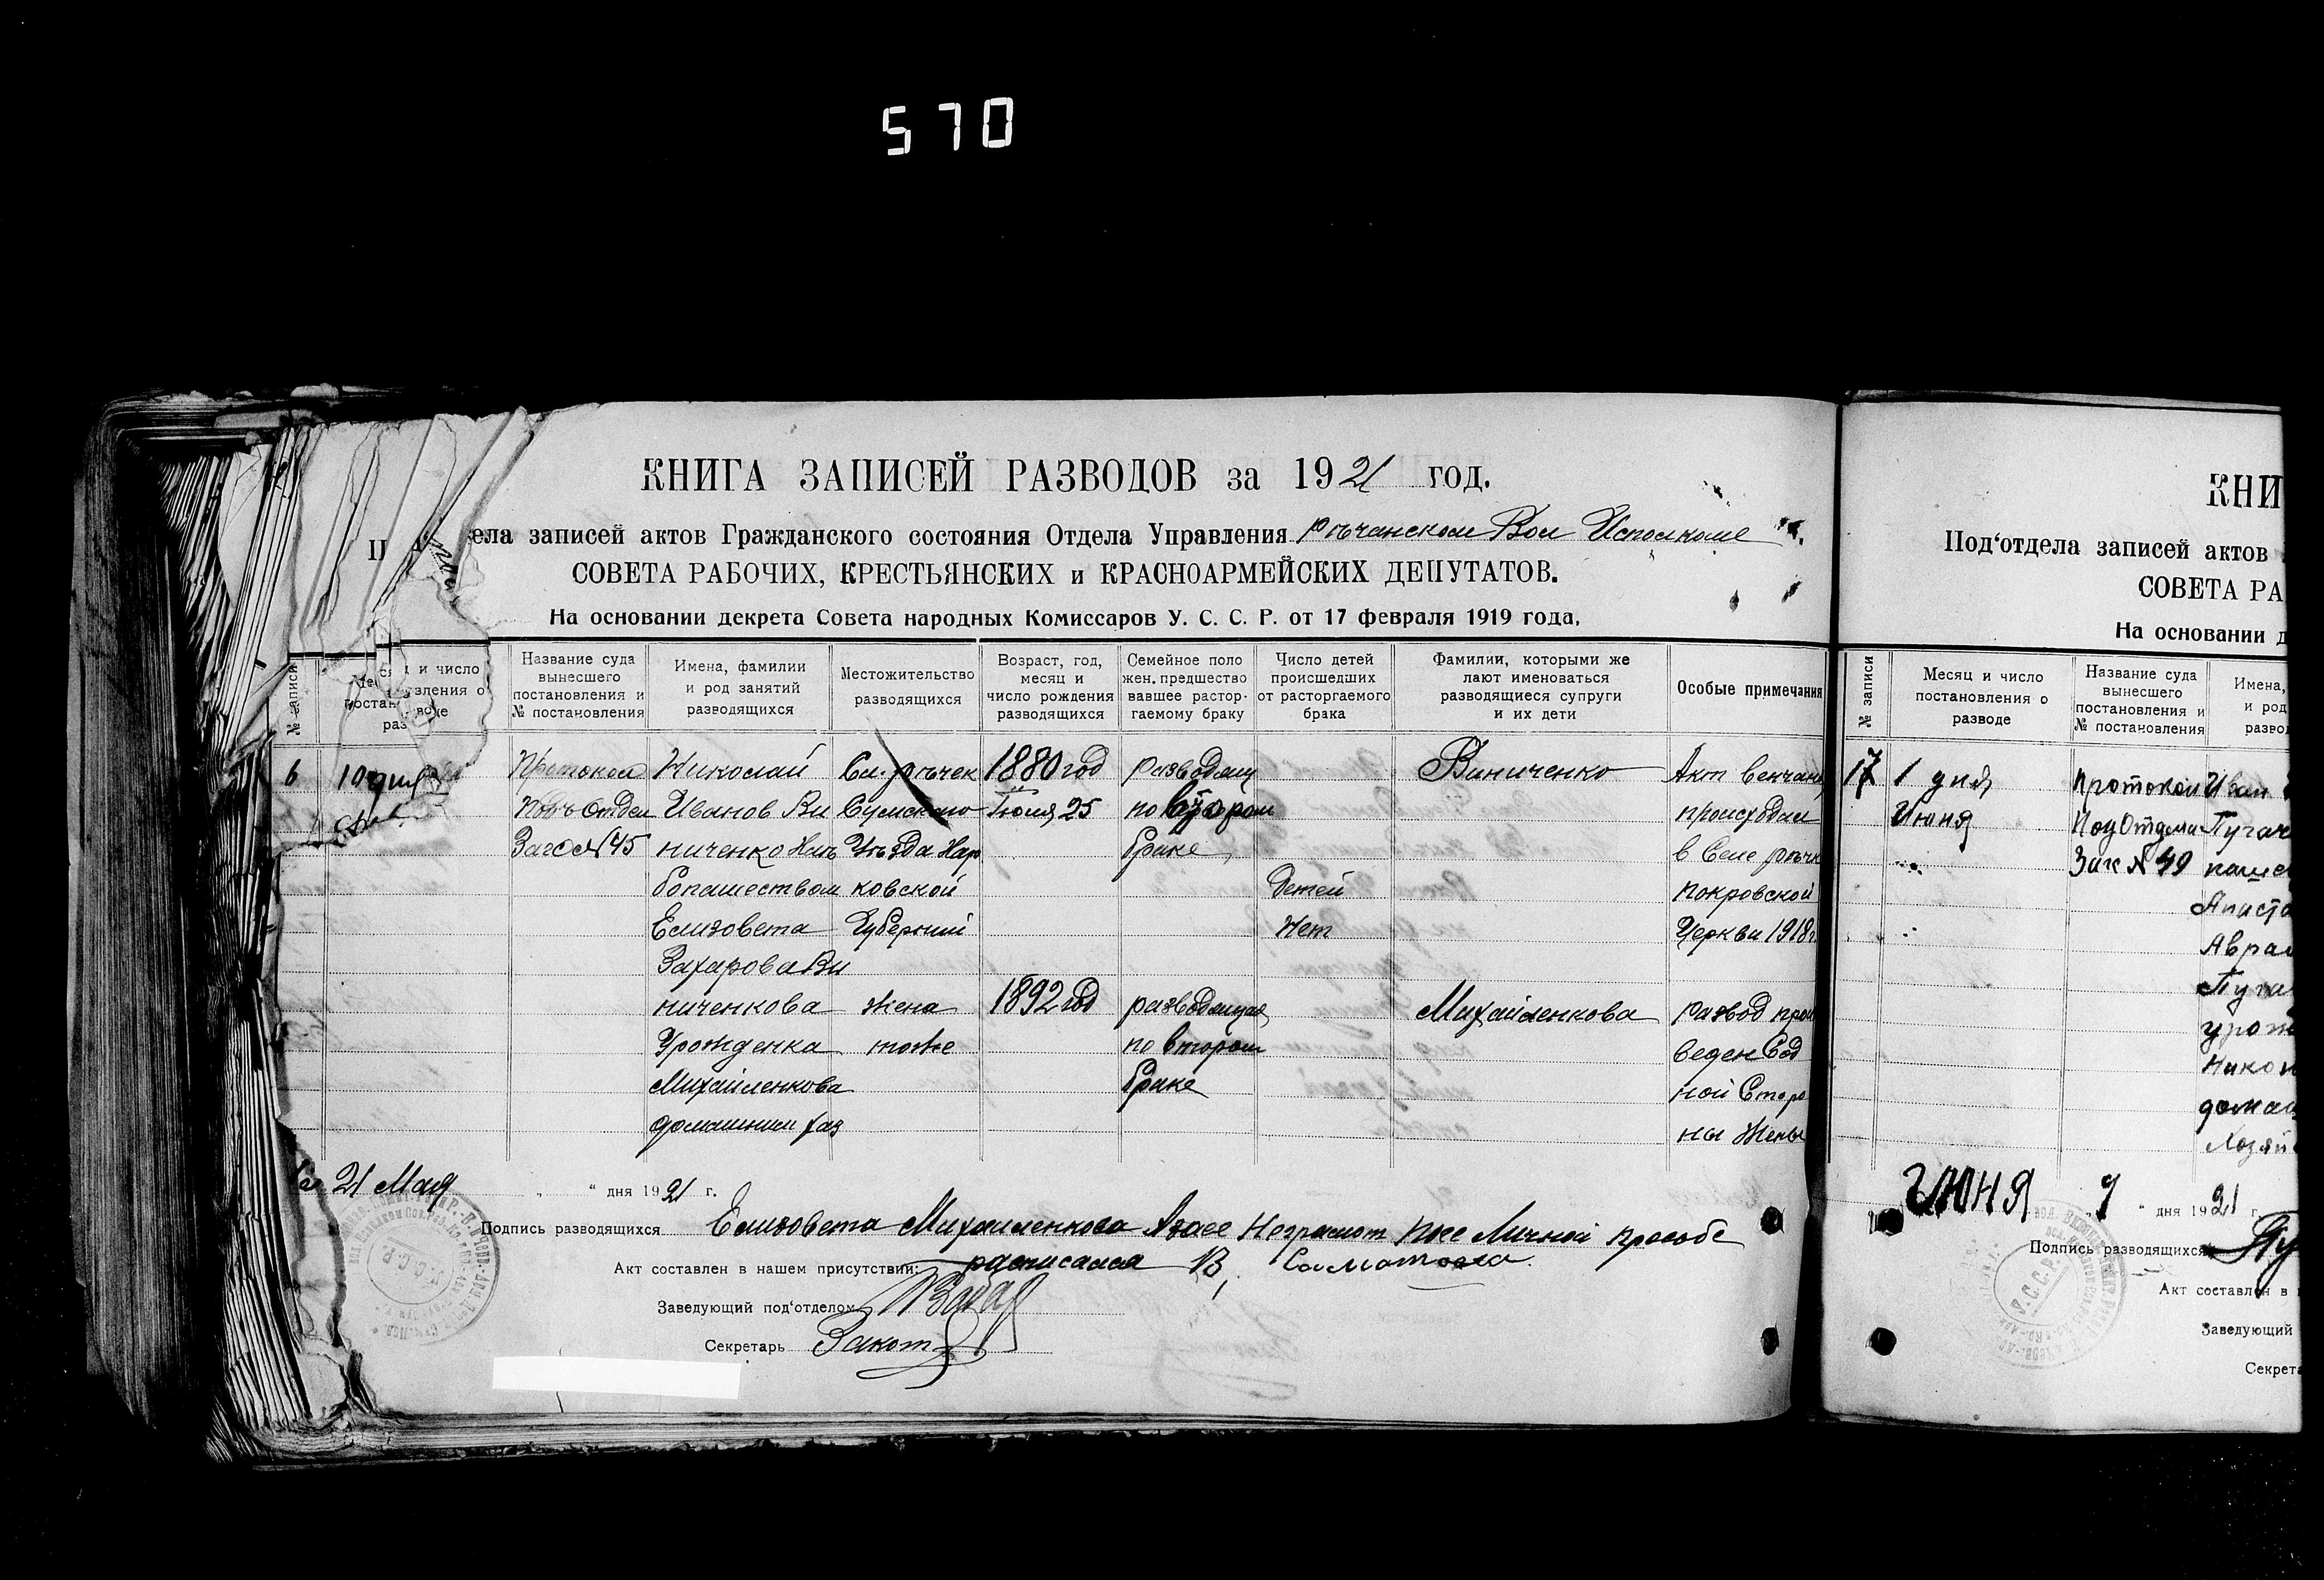 570
КНИГА ЗАПИСЕЙ РАЗВОДОВ за 1921 год.
ела записей актов Гражданского состояния Отдела Управления Рѣчанском Вол Исполкоме
СОВЕТА РАБОЧИХ, КРЕСТЬЯНСКИХ и КРАСНОАРМЕЙСКИХ ДЕПУТАТОВ.
На основании декрета Совета народных Комиссаров У. С. С. Р. от 17 февраля 1919 года.
№ записи
и число
вления о
Название суда
вынесшего
постановления и
№ постановления
Имена, фамилии
и род занятий
разводящихся
Местожительство
разводящихся
Возраст, год,
месяц и
число рождения
разводящихся
Семейное поло
жен. предшество
вавшее растор-
гаемому браку
Число детей
происшедших
от расторгаемого
брака
Фамилии, которыми же
лают именоваться
разводящиеся супруги
и их дети
Особые примечания
6
10
Протокол
Отдел
№ 45
Николай
Иванов Ви
ниченко
бопашеством
Елизовета
Захарова Ви
ниченкова
Урожденка
Михайленкова
домашним хаз
Сл. Рѣчек
Сумского
Уѣзда Хар
ковской
Губернии
Жена
тоже
1880 год
Июля 25
1892 год
разводящ
по втором
браке
разводящая
по втором
браке
Детей
Нет
Виниченко
Михайленкова
Акт венчани
происходил
в Селе Рѣчк
покровской
Церкви 1918г
развод прои
веден Сод
ной Сторо
ны Жены
21 Мая
" дня 1921 г.
Подпись разводящихся Елизовета Михайленкова Неграмот Личной прозбе
Акт составлен в нашем присутствии: расписался
Заведующий под'отделом
Секретарь
КНИ
Под'отдела записей актов
СОВЕТА РА
На основании д
№ записи
Месяц и число
постановления о
разводе
Название суда
вынесшего
постановления и
№ постановления
Имена,
и род
разво
17
1 дня
Июня
Протокол
ПодОтдела
Заг № 49
Иван
Пугач
паше
Авра
Пуга
урож
Никон
домаш
Хозяй
Июня 7 " дня 1921 г.
Подпись разводящихся Пу
Акт составлен в
Заведующий
Секрета